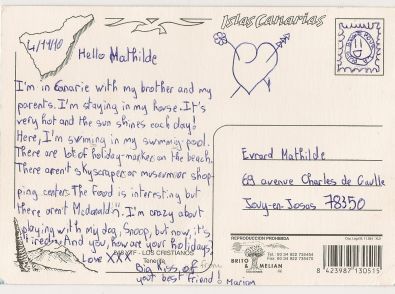 Islas Canarias
4/11/10
Hello Mathilde
I'm in Canarie with my brother and my
parents. I'm staying in my house. It's
very hot and the sun shines each day!
Here, I'm swiming in my swimmy pool.
There are lot of holiday-marker on the beach.
There arent skyscraper or museum or shop-
ping center. The food is interesting but
there arent Mcdonald's. I'm crazy about
playing with my dog, Snoop, but now, it's
tired. And you, how are your holidays?
Love XXX
Big kiss of from
yout best friend!
Marion
Evrard Mathilde
69 avenue Charles de Gaulle
Jouy-en-Josas 78350
LOS CRISTIANOS
Tenerife
REPRODUCCION PROHIBIDA
BRITO
&
MELIAN
8 423987 130515